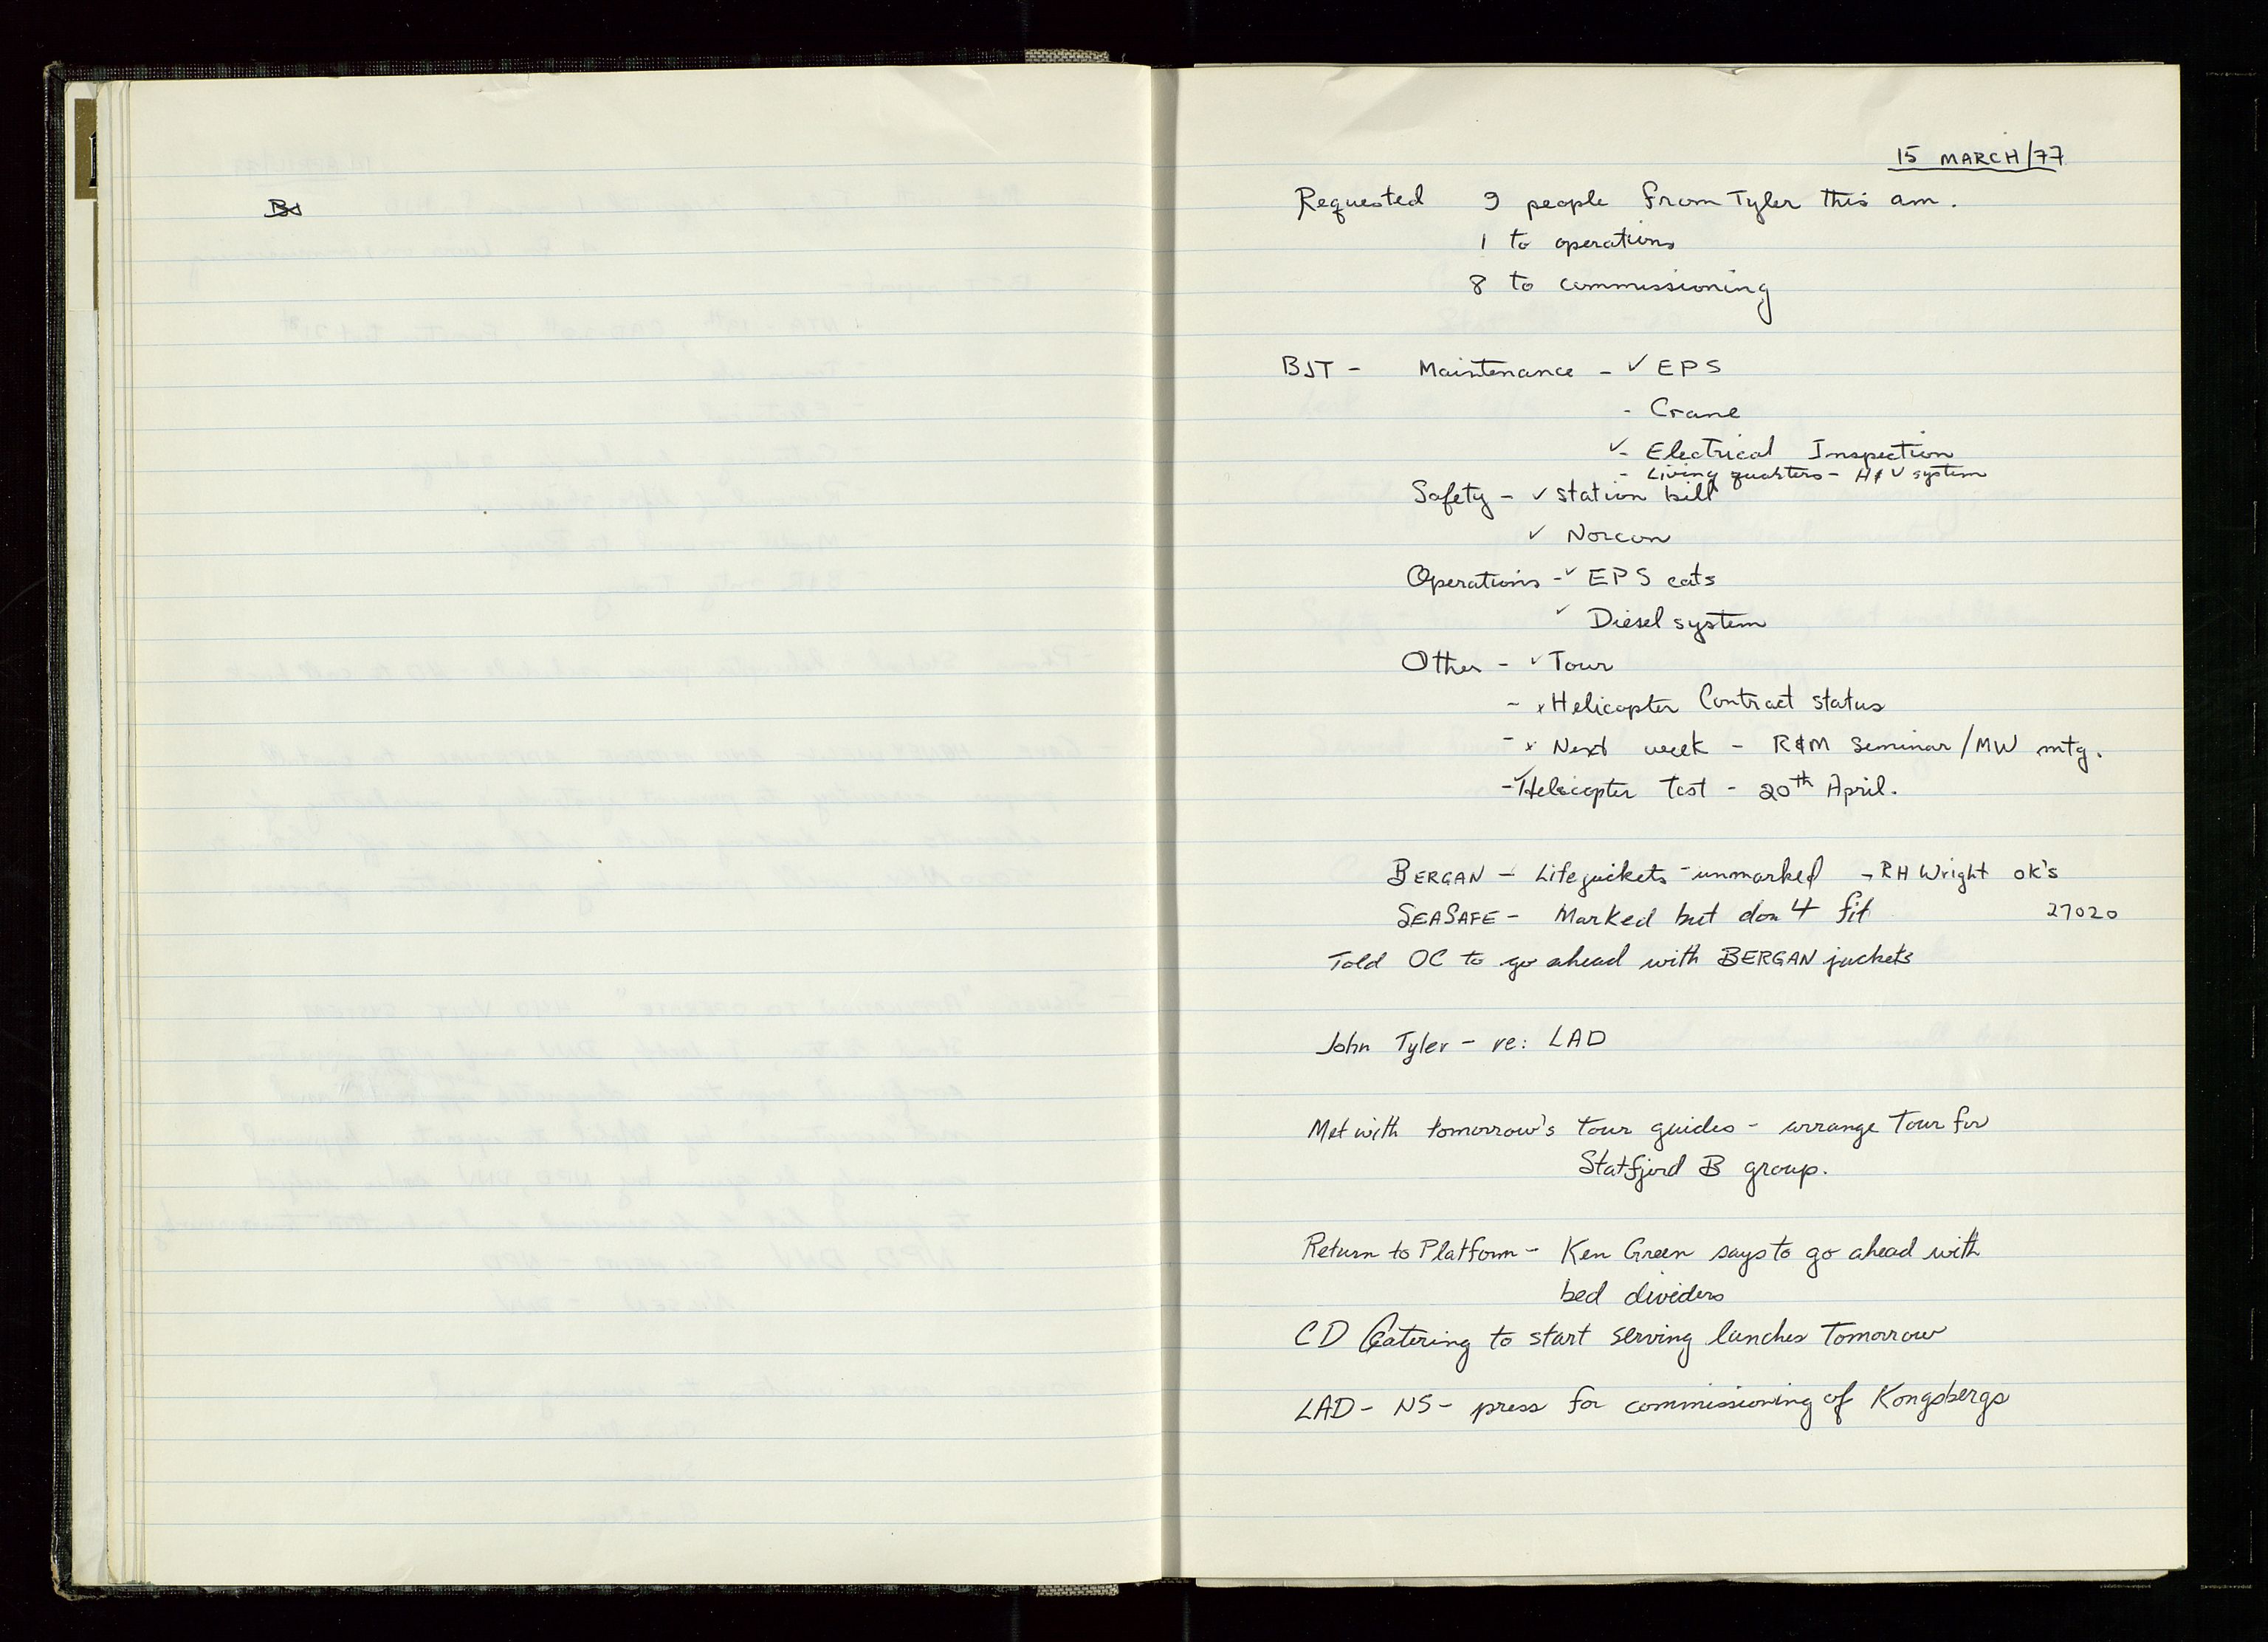 15 MARCH/77
Requested 9 people from Tyler this am.
1 to operations
8 to commissioning
BJT - Maintenance - ✓ EPS
- Crane
✓- Electrical Inspection
- Living quarters - H&V system
Safety - ✓ station bill
✓ Norcon
Operations - ✓ EPS cats
✓ Diesel system
Other - ✓ Tour
- x Helicopter Contract status
- x Next week - R&M Seminar/MW mtg.
-✓ Helicopter Test - 20th April.
BERGAN - Lifejackets - unmarked → RH Wright ok's
SEASAFE - Marked but don't fit 27020
Told OC to go ahead with BERGAN jackets
John Tyler - re: LAD
Met with tomorrow's tour guides - arrange Tour for
Statfjord B group.
Return to Platform - Ken Green says to go ahead with
bed dividers
CD Catering to start serving lunches Tomorrow
LAD - NS - press for commissioning of Kongsbergs